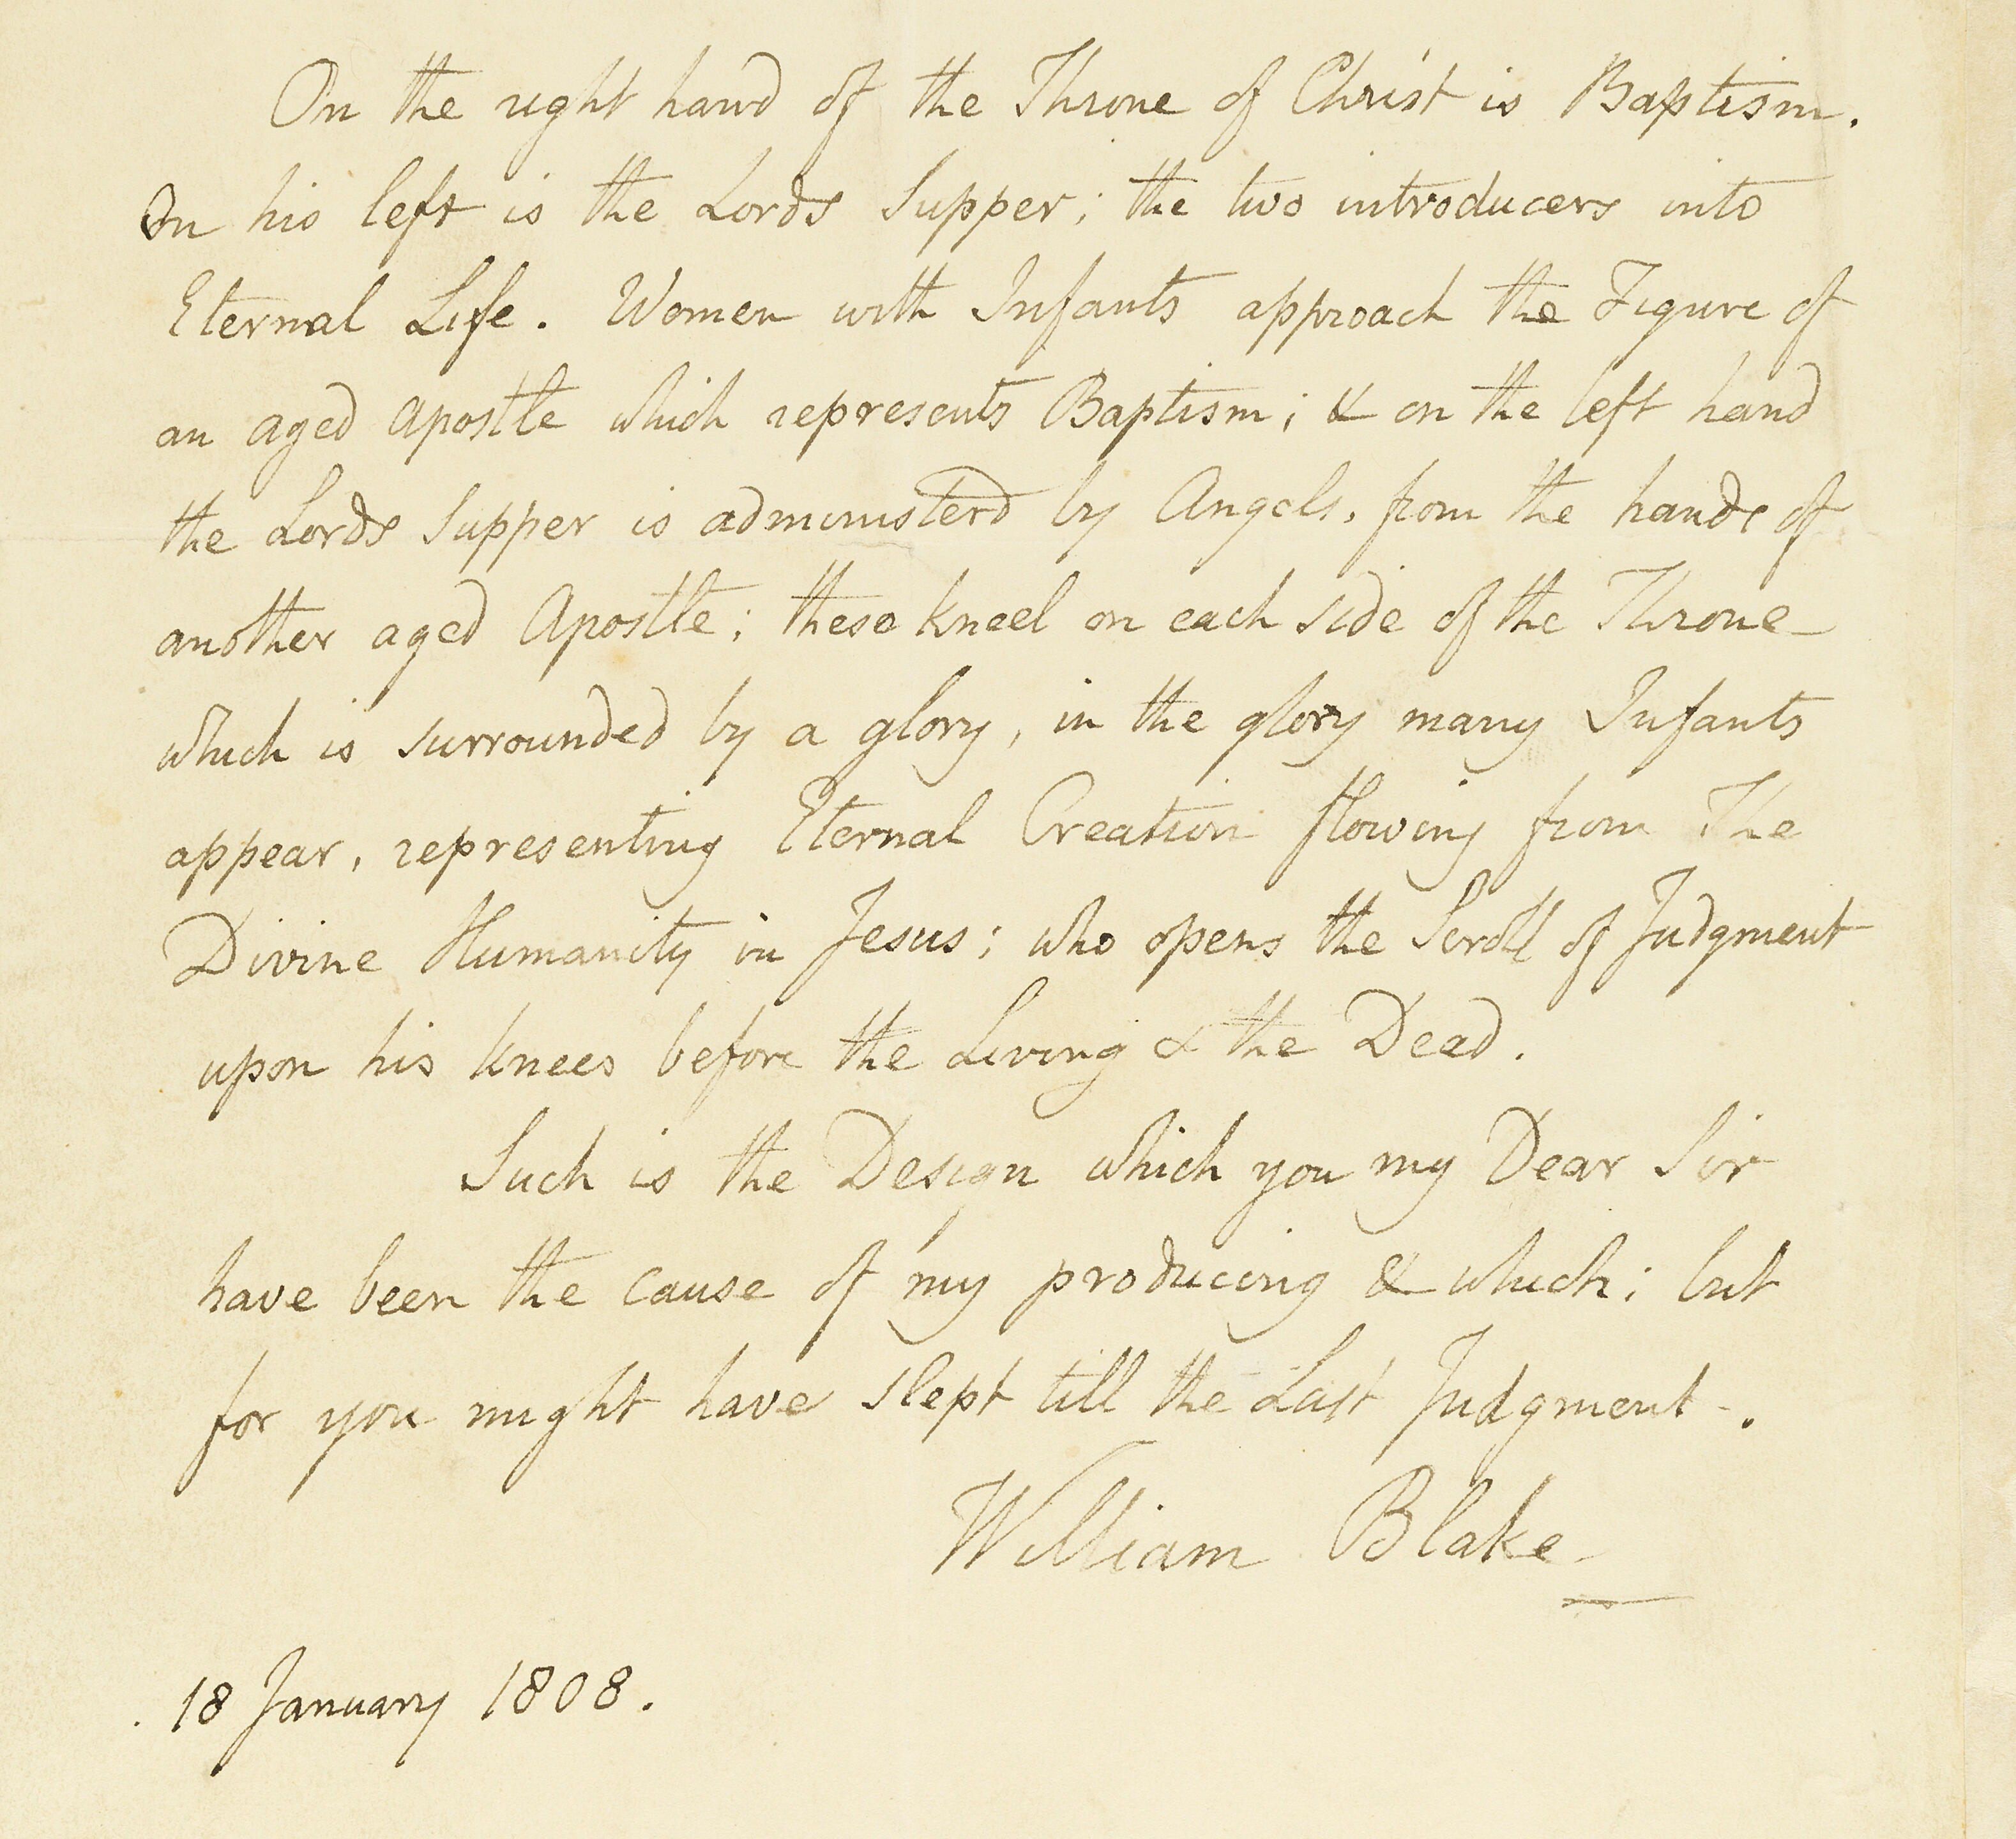 On the right hand of the Throne of Christ is Baptism.
On his left is the Lords Supper; the two introducers into
Eternal Life. Women with Infants approach the Figure of
an aged Apostle which represents Baptism; & on the left hand
the Lords Supper is administerd by Angels, from the hands of
another aged Apostle; these kneel on each side of the Throne
which is surrounded by a glory, in the glory many Infants
appear, representing Eternal Creation flowing from The
Divine Humanity in Jesus; who opens the Scroll of Judgment
upon his knees before the Living & the Dead.
Such is the Design which you my Dear Sir
have been the cause of my producing & which; but
for you might have slept till the Last Judgment-.
William Blake
. 18 January 1808.